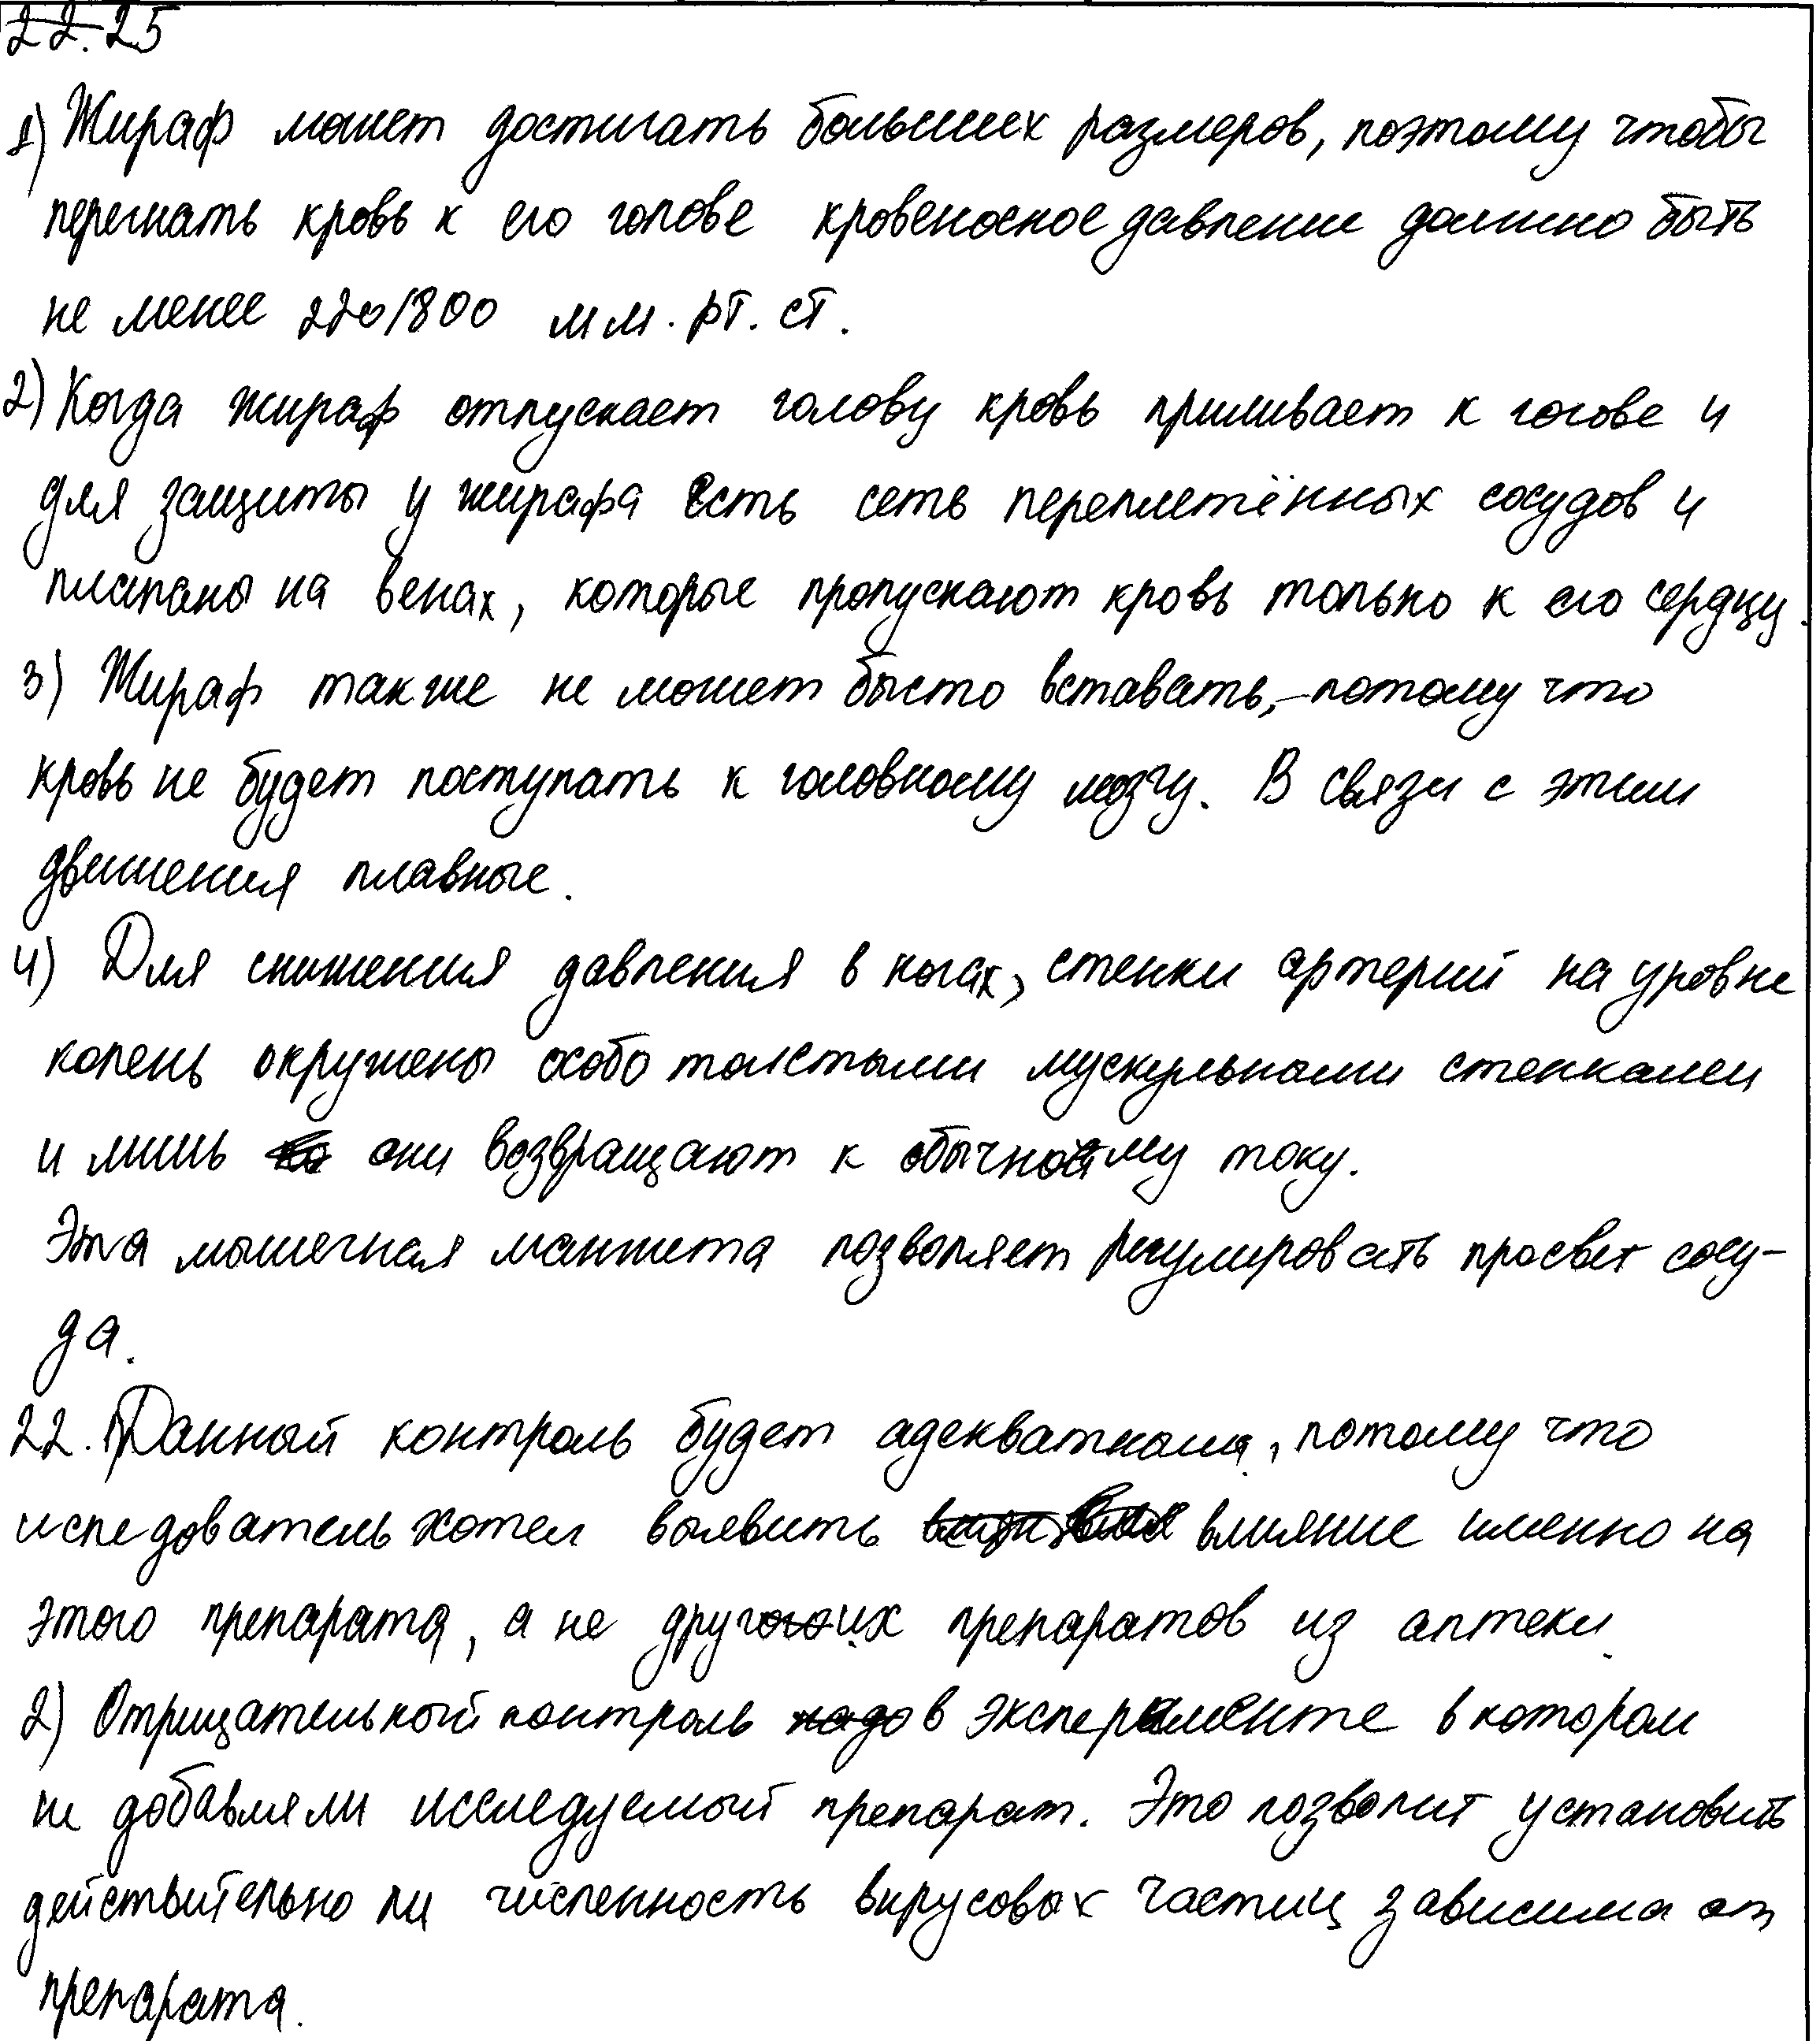 22. 25
1) Жираф может достигать больших размеров, поэтому чтобы
перегнать кровь к его голове кровеносное давление должно быть
не менее 220/800 мм. рт. ст.
2) Когда жираф отпускает голову кровь приливает к голове и
для защиты у жирафа есть сеть переплетённых сосудов и
клапаны на венах, которые пропускают кровь только к его сердцу.
3) Жираф также не может бысто вставать, потому что
кровь не будет поступать к головному мозгу. В связи с этим
движения плавные.
4) Для снижения давления в ногах, стенки артерий на уровне
колень окружены особо толстыми мускульными стенками
и лишь они возвращают к обычному току.
Эта мышечная манжета позволяет регулировать просвет сосу-
да.
22. Данный контроль будет адекватным, потому что
иследователь хотел выявить влияние именно на
этого препарата, а не других препаратов из аптеки.
2) Отрицательный контроль в эксперименте в котором
не добавляли исследуемый препарат. Это позволит установить
действительно ли численность вирусовых частиц зависима от
препарата.